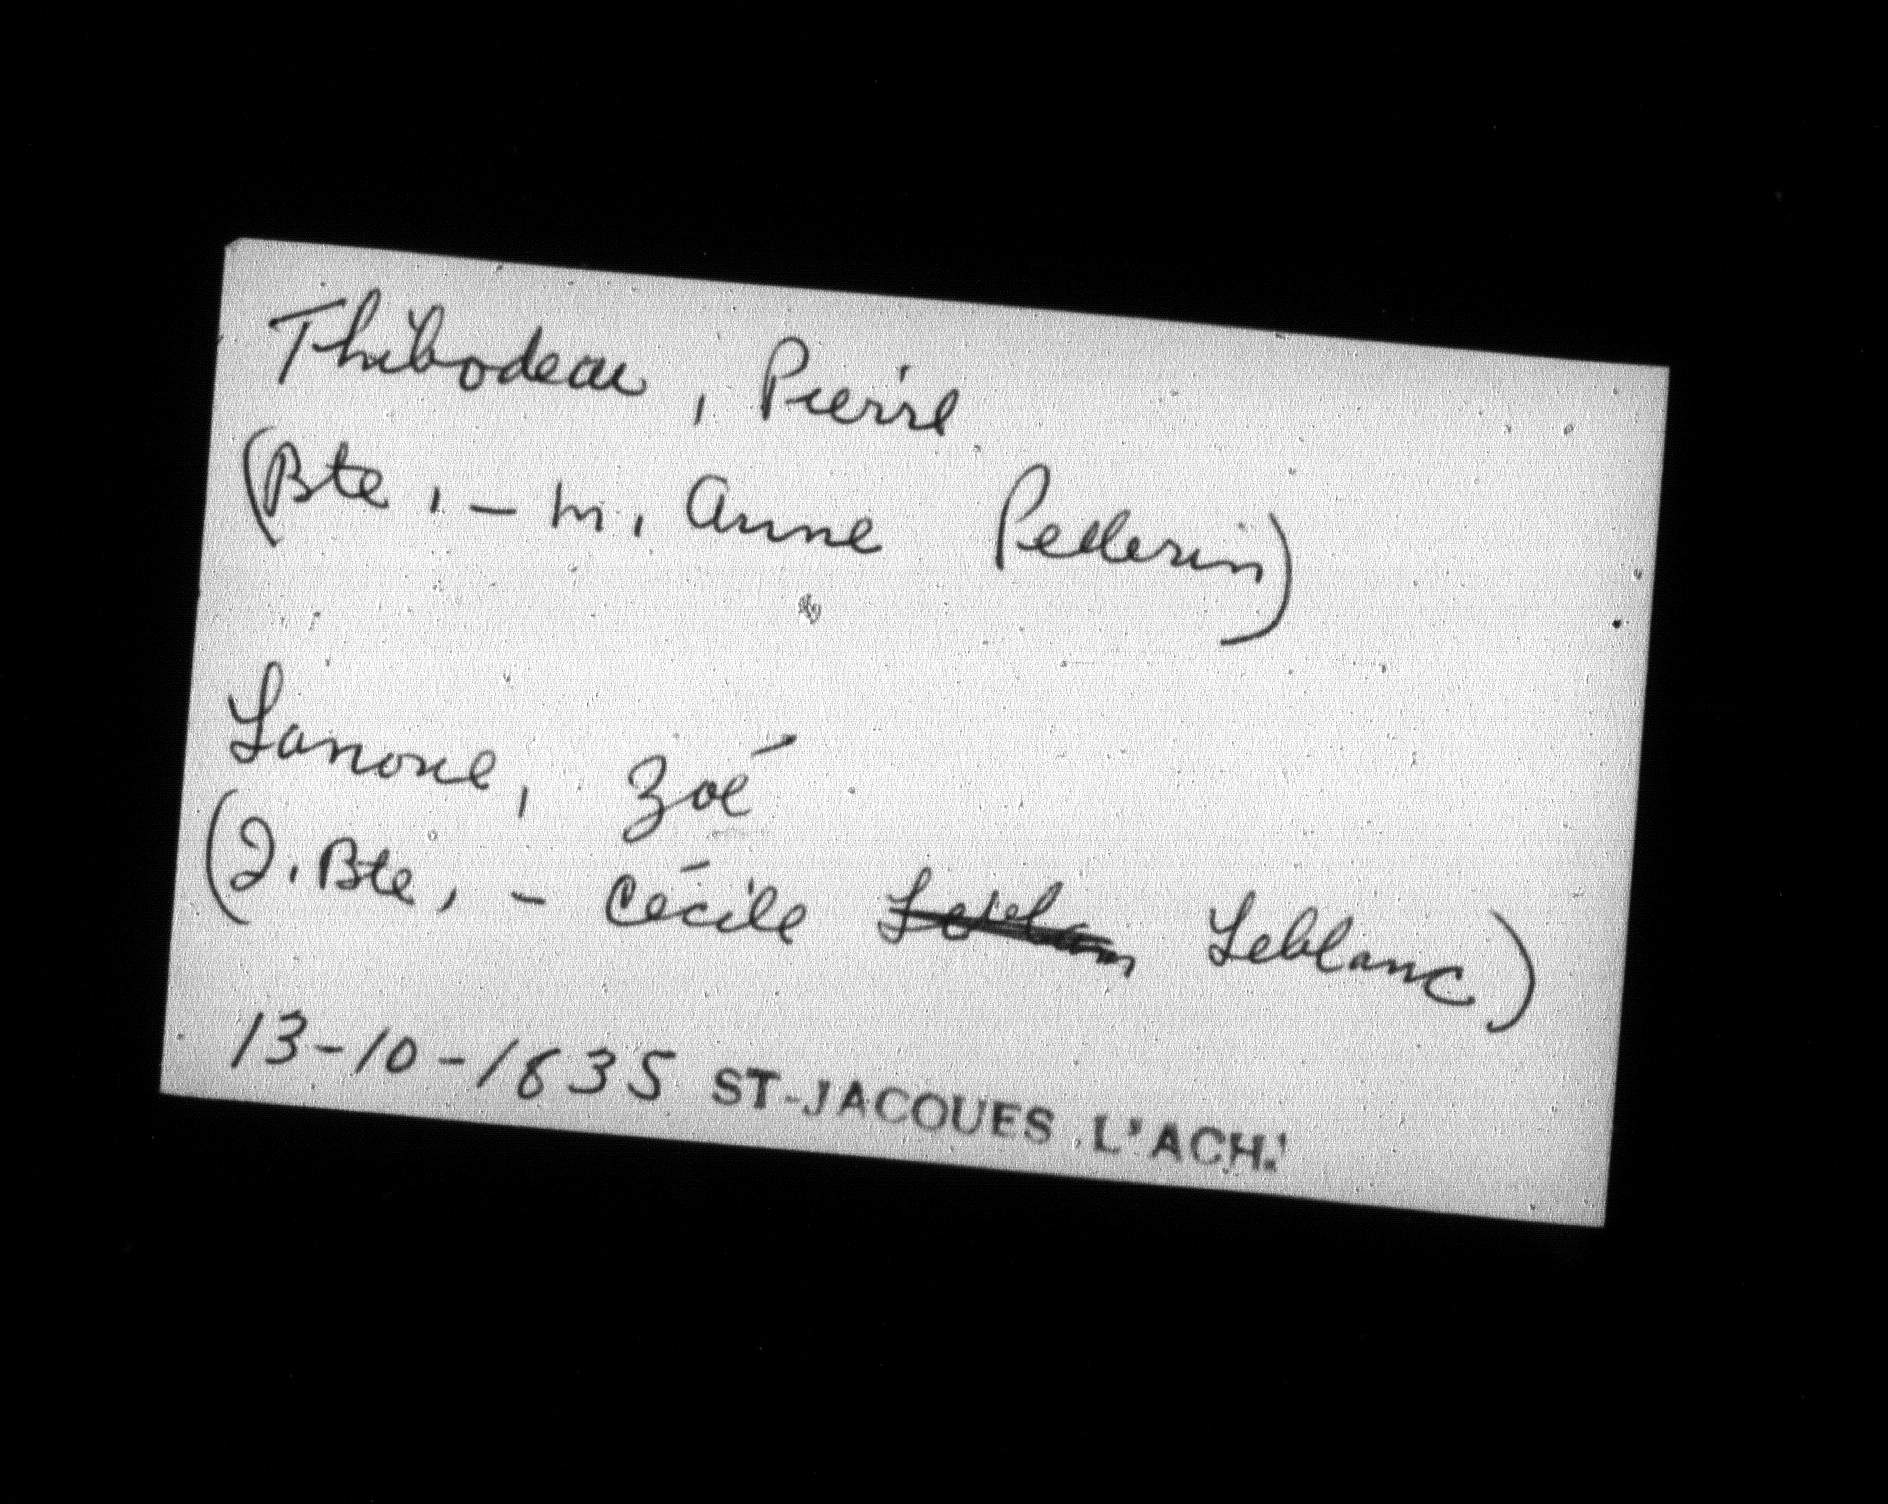 Thibodeau, Pierre
(Bte, - M. Anne Pellerin)
Lanoue, Zoé
(J. Bte, - Cécile Leblanc)
13-10-1835 ST-JACQUES L'ACH.